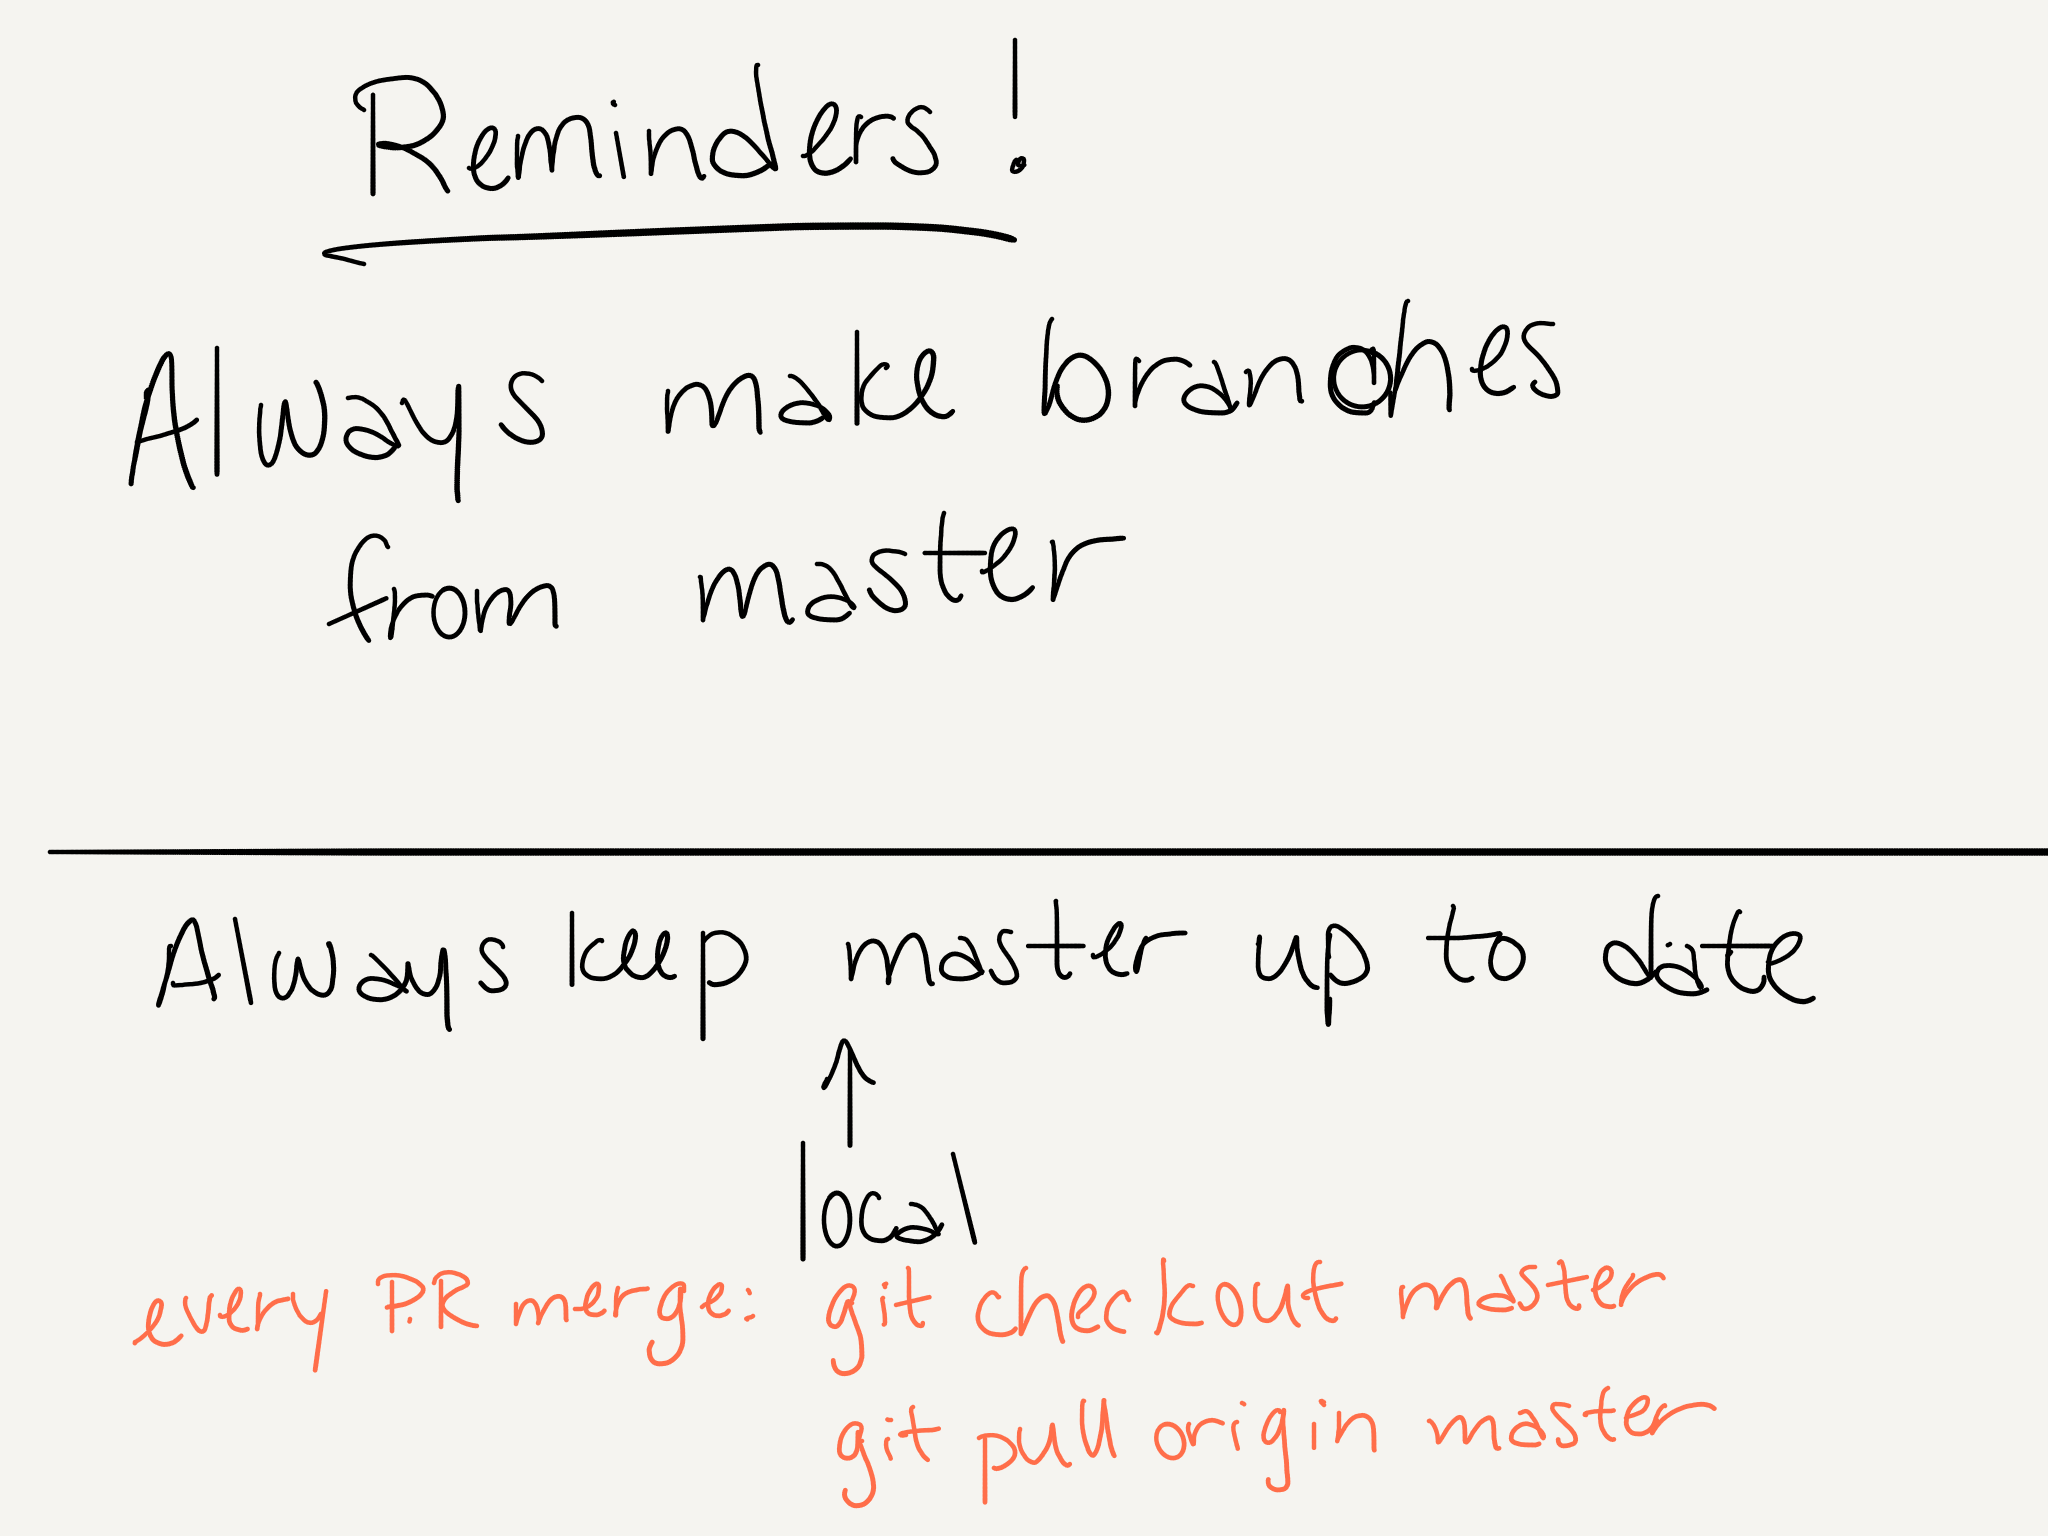 Reminders!
Always make branches
from master
Always keep master up to date
local
every P.R merge: git checkout master
git pull origin master